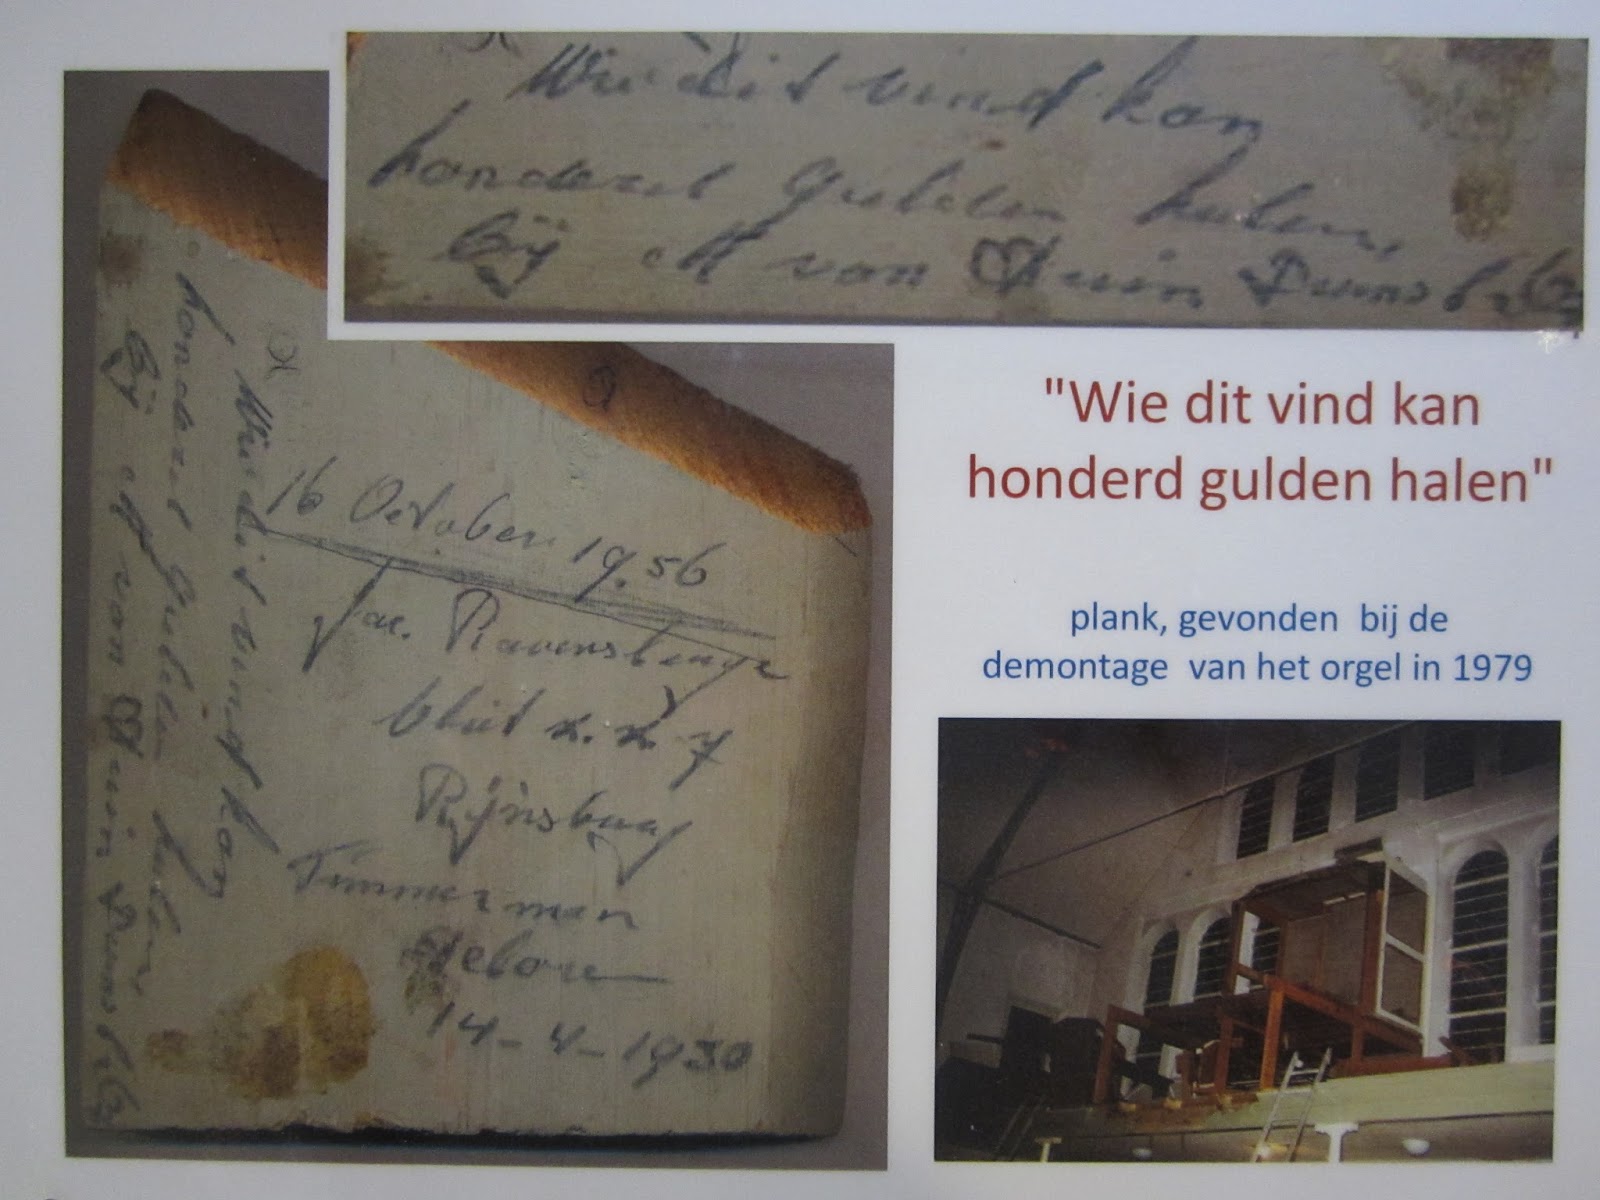 Wie dit vind kan
honderd gulden halen,
bij M van Duin Duinstr
"Wie dit vind kan
honderd gulden halen"
plank, gevonden bij de
demontage van het orgel in 1979
16 October 1956
Jac. Ravensbergen
Vliet 7
Rijnsburg
Timmerman
Gebore
14-4-1930
Wie dit vind kan
honderd gulden halen,
bij M van Duin Duinstr